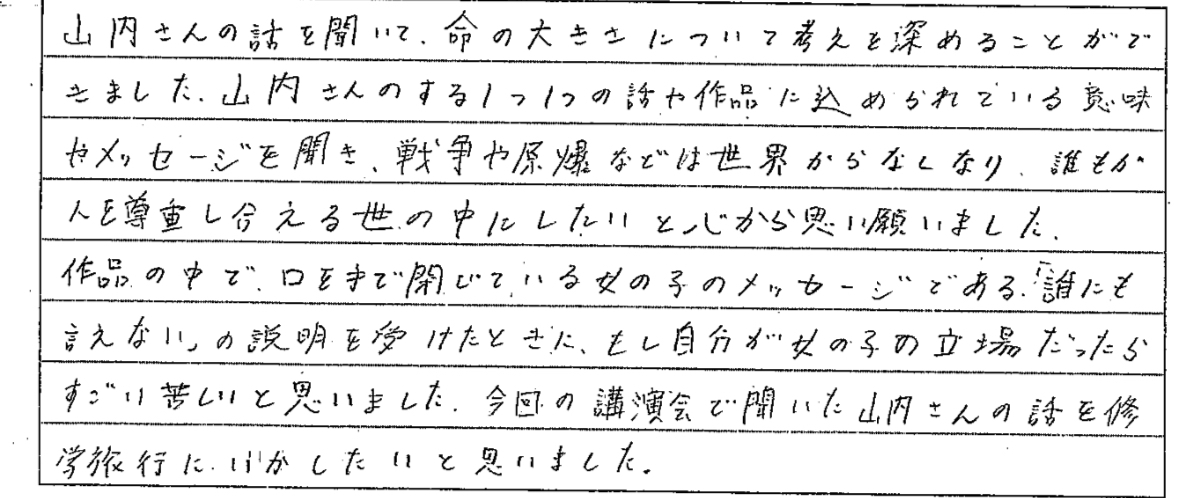 山内さんの話を聞いて、命の大きさについて考えを深めることがで
きました。山内さんのする1つ1つの話や作品に込められている意味
やメッセージを聞き、戦争や原爆などは世界からなしなり、誰もが
人を尊重し合える世の中にしたいと心から思い願いました。
作品の中で、口を手で閉じている女の子のメッセージである、「誰にも
言えない」の説明を受けたときに、もし自分が女の子の立場だったら
すごい苦しいと思いました。今回の講演会で聞いた山内さんの話を修
学旅行にいかしたいと思いました。